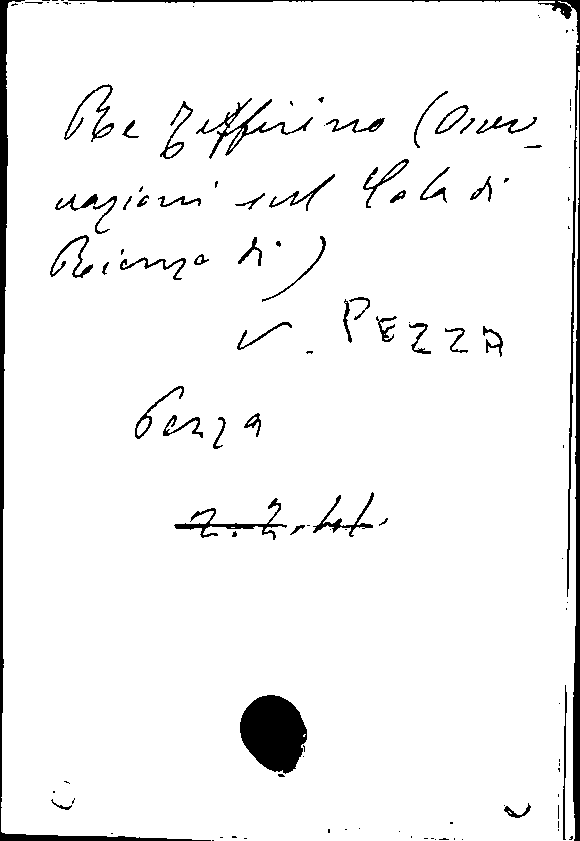 Re Zeffirino (Osser-
vazioni sul Cola di
Rienzo di)
V. PEZZA
Pezza